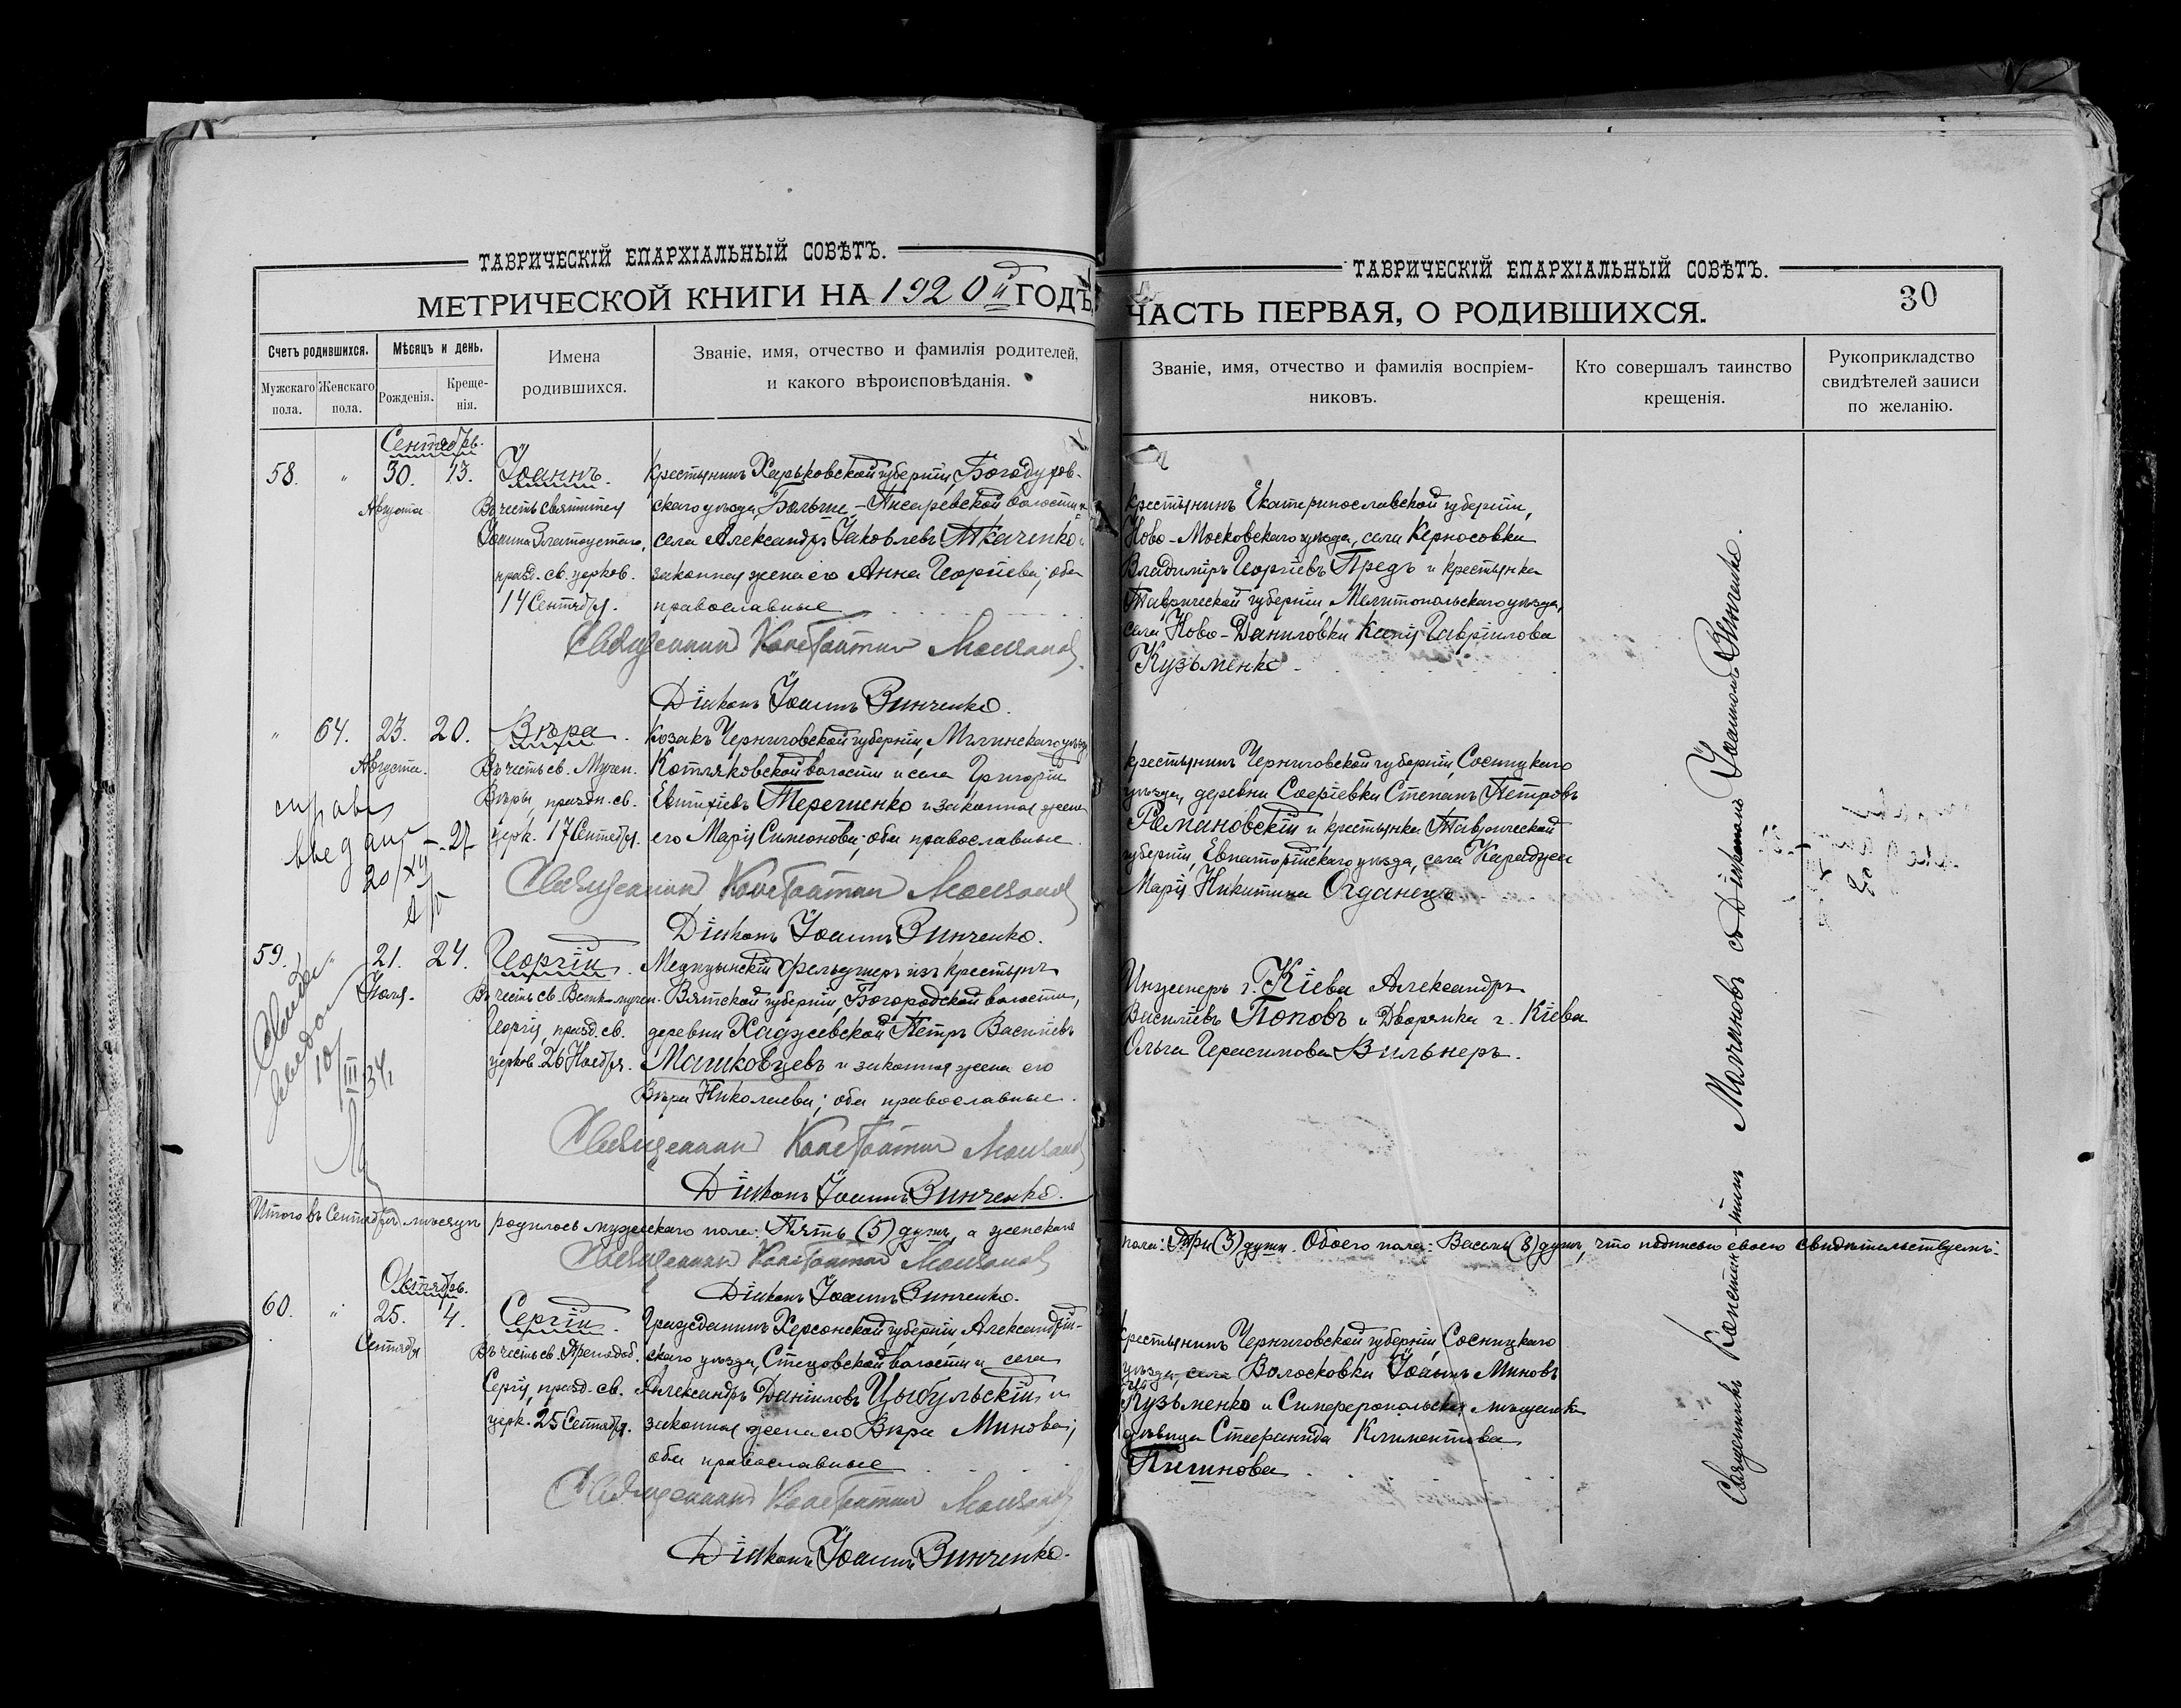 ТАВРИЧЕСКІЙ ЕПАРХІАЛЬНЫЙ СОВѢТЪ.
МЕТРИЧЕСКОЙ КНИГИ НА 1920й ГОДЪ,
Счетъ родившихся.
Мужскаго пола.
Женскаго пола.
Мѣсяцъ и день.
Рожденія.
Креще-
нія.
Имена
родившихся.
Званіе, имя, отчество и фамилія родителей,
и какого вѣроисповѣданія.
Сентябрь.
58. " 30. 13. Іоаннъ.
Августа
Въ честь святителя
Іоанна Златоустаго,
празд. св. церков.
14 Сентября.
Крестьянинъ Харьковской губерніи, Богодухов-
скаго уѣзда, Больше-Писаревской волости и
села Александръ Іаковлевъ Ткаченко и
законная жена его Анна Георгіева; оба
православные
Священник Константин Молчанов
Діаконъ Іоаннъ Винченко.
" 64. 23. 20. Вѣра.
Августа.
Въ честь св. Мучен.
Вѣры, праздн. св.
церк. 17 Сентября.
Козакъ Черниговской губерніи, Мглинскаго уѣзда
Котляковской волости и села Григорій
Евтихіевъ Терещенко и законная жена
его Марія Симонова; оба православные.
20/XII-27
Священник Константин Молчанов
Діаконъ Іоаннъ Винченко.
59. " 21. 24. Георгій.
Іюля.
Въ честь св. Велик-мучен.
Георгія, празд. св.
церков. 26 Ноября.
Медицынскій фельдшеръ изъ крестьянъ
Вятской губерніи, Богородской волости,
деревни Хаджеевской Петръ Василіевъ
Машковцевъ и законная жена его
Вѣра Николаева; оба православные.
10/III 34г
Священник Константин Молчанов
Діаконъ Іоаннъ Винченко.
Итого въ Сентябрѣ мѣсяцѣ родилось мужескаго пола: Пять (5) душъ, а женскаго
Священник Константин Молчанов
Діаконъ Іоаннъ Винченко.
Октябрь.
60. " 25. 4. Сергій.
Сентября
Въ честь св. Преподоб.
Сергія, празд. св.
церк. 25 Сентября.
Гражданинъ Херсонской губерніи, Александрій-
скаго уѣзда, Стецовской волости и села
Александръ Даніиловъ Цыбульскій и
законная жена его Вѣра Минова;
оба православные
Священник Константин Молчанов
Діаконъ Іоаннъ Винченко.
ТАВРИЧЕСКІЙ ЕПАРХІАЛЬНЫЙ СОВѢТЪ.
ЧАСТЬ ПЕРВАЯ, О РОДИВШИХСЯ.
30
Званіе, имя, отчество и фамилія воспріем-
никовъ.
Кто совершалъ таинство
крещенія.
Рукоприкладство
свидѣтелей записи
по желанію.
Крестьянинъ Екатеринославской губерніи,
Ново-Московскаго уѣзда, села Керносовки
Владиміръ Георгіевъ Предъ и крестьянка
Таврической губерніи, Мелитопольскаго уѣзда,
села Ново-Даниловки Гавріилова
Кузьменко.
Крестьянинъ Черниговской губерніи, Сосницкаго
уѣзда, деревни Сергіевки Степанъ Петровъ
Романовскій и крестьянка Таврической
губерніи, Евпаторійскаго уѣзда, села Караджи
Марія Никитина Огданецъ
Инженеръ г. Кіева Александръ
Василіевъ Поповъ и Дворянка г. Кіева
Ольга Герасимова Вильнеръ.
пола: Три (3) души. Обоего пола: Восемь (8) душъ, что подписью своею свидѣтельствуемъ:
Крестьянинъ Черниговской губерніи, Сосницкаго
уѣзда, села Волосковки Іоаннъ Миновъ
Кузьменко и Симферопольская мѣщанка
дѣвица Стефанида Климентова
Пигинова
Священникъ Константинъ Молчановъ съ Діакономъ Іоанномъ Винченко.